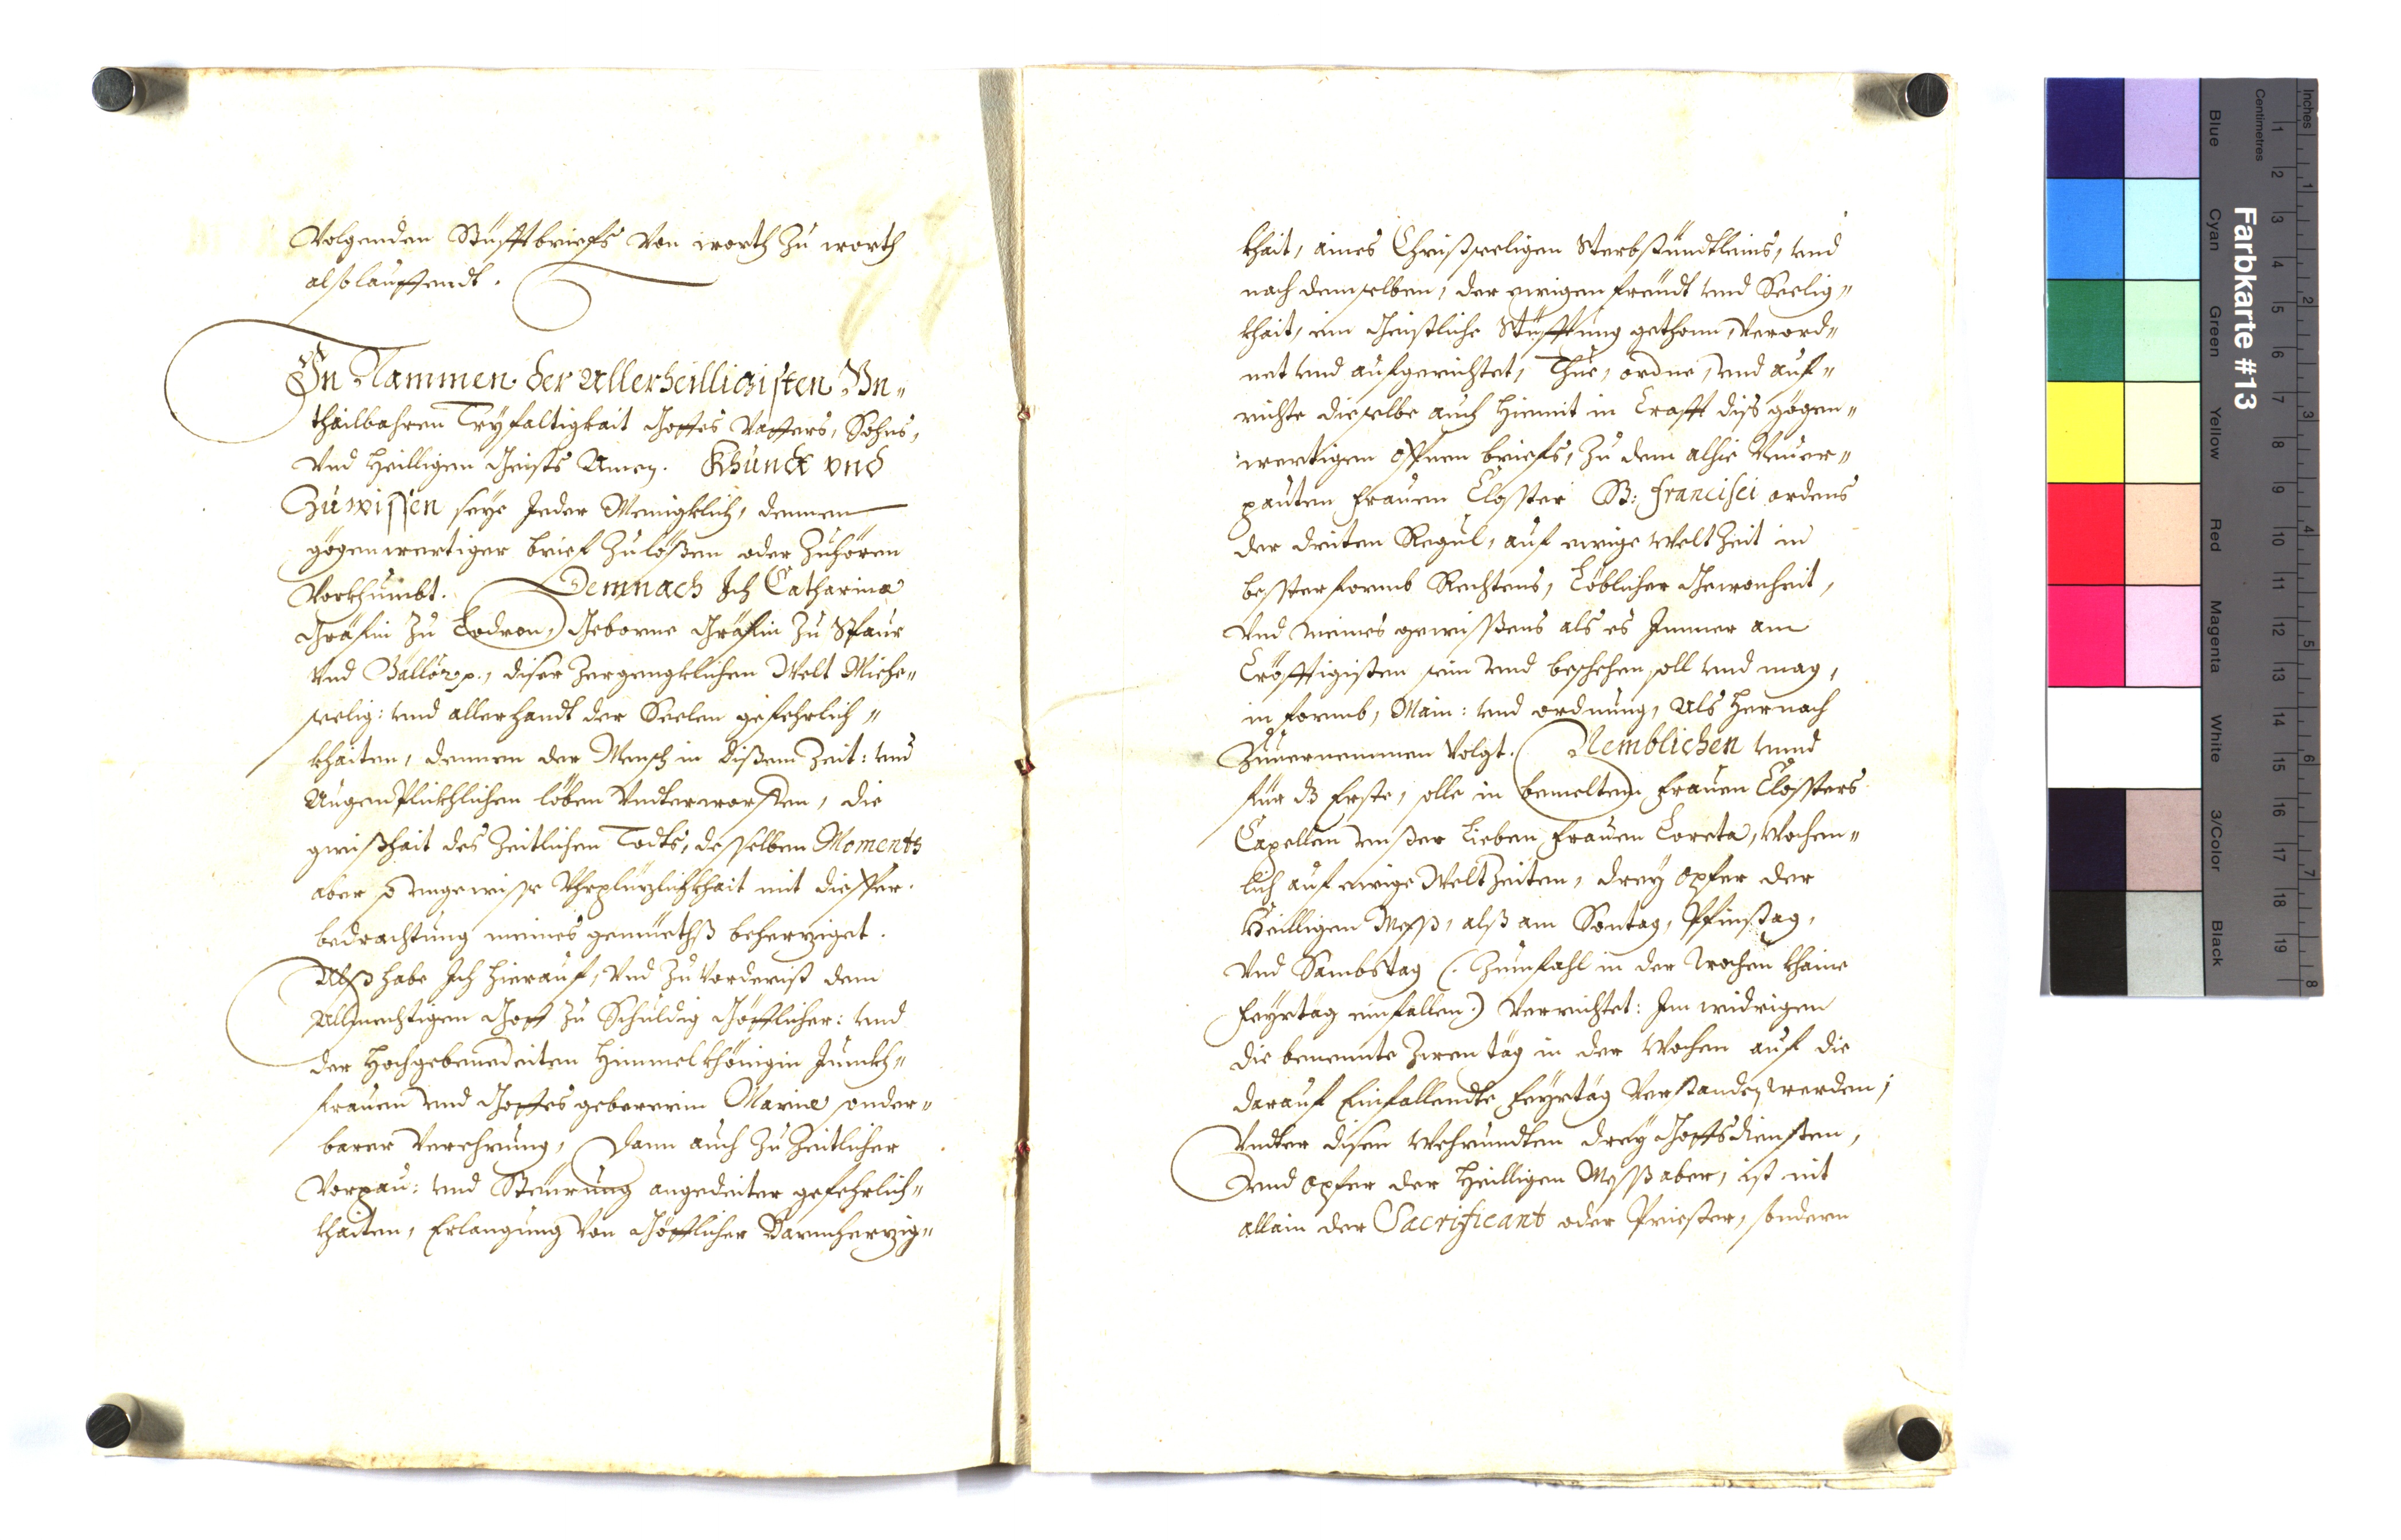 Volgenden Stüfftbriefs von worth zu worth
alßlauffendt.
In Nammen der Allerheilligisten Vn„
thailbahren Tryfaltigkait Gottes Vatters, Sohns,
Vnd Heilligen Geists Amen. Khundt vnd
Zuwissen seye Jeder Menigklich, dennen
gögenwertiger brief Zulößen oder Zuhören
Vorkhumbt. Demnach Ich Catharina
Gräfin Zu Lodron, Geborne Gräfin Zu Spaur
Vnd Vallör p., diser Zergengklichen Welt Miehe„
seelig: vnd allerhandt der Seelen gefehrlich„
khaiten, dennen der Mensch in dißem Zeit: vnd
Augenplickhlichen löben Vndterworffen, die
gwißhait des Zeitlichen Todts, desselben Moments
aber so vngewisse Vhrplüzlichkhait mit dieffer
bedrachtung meines gemüeths beherziget.
Alß habe Ich hierauf, Vnd Zu Vorderist dem
Allmechtigen Gott Zu Schuldig Göttlicher: vnd
der Hochgebenedeiten Himmelkhönigin Junckh„
frauen vnd Gottes gebererin Mariæ sonder„
barer Verehrung, Dann auch Zu Zeitlicher
Vorpau: vnd Steürung angedeiter gefehrlich„
khaiten, Erlangung von Göttlicher Barmherzig„
khait, aines Christseeligen Sterbstündtleins, vnd
nach demselben, der ewigen freudt vnd Seelig„
khait, ein Geistliche Stüfftung gethonn, Verord„
net vnd aufgerichtet, Thue, ordne, vnd auf„
richte dieselbe auch hiemit in Crafft diß gögen„
wertigen offnen briefs, Zu dem alhie Neuer„
pauten Frauen Closster St: Francisci ordens
der driten Regul, auf ewige Welt Zeit in
besster formb Rechtens, Löblicher Gewonheit,
Vnd meines gewissens als es Immer am
Cröfftigisten sein vnd beschehen soll vnd mag,
in formb, Main: vnd ordnung, Als hernach
Zuuernemmen Volgt. Nemblichen vnnd
für dß Erste, solle in bemelten Frauen Clossters
Capellen vnßer Lieben Frauen Loreta, Wochen„
lich auf ewige Welt Zeiten, drey Opfer der
Heilligen Meß, alß am Sontag, Pfinstag,
Vnd Sambstag (: Zumfahl in der Wochen khaine
Feyrtäg einfallen:) Verrichtet: Im widrigen
die benennte Zwen täg in der Wochen auf die
darauf Einfallendte Feyrtäg Verstanden werden,
Vndter disen drey Gottsdiensten,
Vnd Opfer der Heilligen Meß aber, ist nit
allain der Sacrificant oder Priester, sondern
Farbkarte #13
Blue Cyan Green Yellow Red Magenta White 3/Color Black
Centimetres 1 2 3 4 5 6 7 8 9 10 11 12 13 14 15 16 17 18 19
Inches 1 2 3 4 5 6 7 8